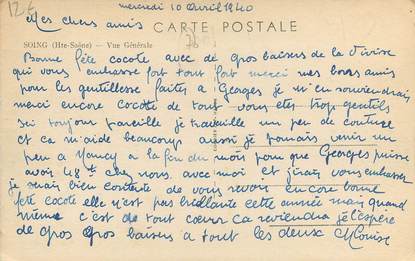 12€
mercredi 10 avril 1940
Mes chers amis
CARTE POSTALE
SOING (Hte-Saône) — Vue Générale
Bonne fête cocote avec de gros baisers de la
qui vous embrasse fort tout fait merci mes bons amis
pour les gentillesse faites a Georges je m'en souviendrais
merci encore cocote de tout vous etes trop gentils
sei toujour pareille je travaille un peu de couture
et ca m'aide beaucoup aussi je pensais venir un
peu a Nancy a la fin du mois pour que Georges puisse
avoir 48h chez nous avec moi et j'irais vous embrasser
je serais bien contente de vous revoir encore bonne
fete cocote elle n'est pas brillante cette année mais quand
même c'est de tout coeur ca reviendra je l'espère
de gros gros baisers a tout les deux Louise